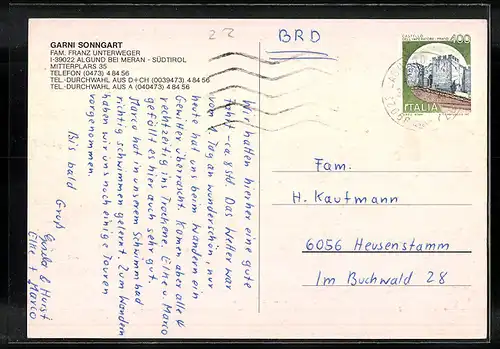 GARNI SONNGART
FAM. FRANZ UNTERWEGER
I-39022 ALGUND BEI MERAN - SÜDTIROL
MITTERPLARS 35
TELEFON (0473) 4 84 56
TEL.-DURCHWAHL AUS D+CH (0039473) 4 84 56
TEL.-DURCHWAHL AUS A (040473) 4 84 56
22
BRD
CASTELLO
400
ITALIA
Wir hatten hierher eine gute
Fahrt - ca 8 Std. Das Wetter war
vom 1. Tag an wunderschön, nur
heute hat uns beim Wandern ein
Gewitter überrascht. Kamen aber alle 4
rechtzeitig ins Trockene. Elke u. Marco
gefällt es hier auch sehr gut.
Marco hat in unserem Schwimmbad
richtig schwimmen gelernt. Zum Wandern
haben wir uns noch einige Touren
vorgenommen.
Bis bald Gruß
& Horst
Elke + Marco
Fam.
H. Kaufmann
6056 Heusenstamm
Im Buchwald 28